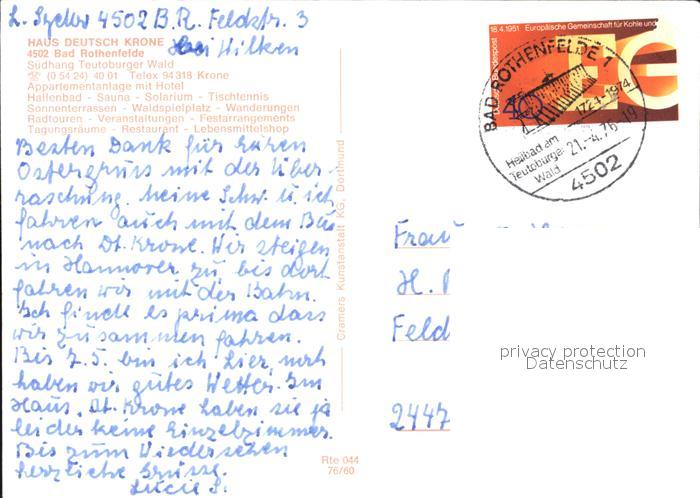 L. 4502 B.R. Feldstr. 3
bei Hilken
HAUS DEUTSCH KRONE
4502 Bad Rothenfelde
Südhang Teutoburger Wald
☎ (0 54 24) 40 01 Telex 94 318 Krone
Appartementanlage mit Hotel
Hallenbad - Sauna - Solarium - Tischtennis
Sonnenterrassen - Waldspielplatz - Wanderungen
Radtouren - Veranstaltungen - Festarrangements
Tagungsräume - Restaurant - Lebensmittelshop
Besten Dank für Euren
Ostergruss mit der Über-
raschung. Meine Schw. u. ich
fahren auch mit dem Bus
nach Dt. Krone. Wir steigen
in Hannover zu, bis dort
fahren wir mit der Bahn.
Ich finde es prima dass
wir zusammen fahren.
Bis 7.5. bin ich hier, noch
haben wir gutes Wetter. Im
Haus, Dt. Krone haben sie ja
leider keine Einzelzimmer.
Bis zum Wiedersehen
herzliche Grüsse.
Lucie S.
Cramers Kunstanstalt KG, Dortmund
Rte 044
76/60
18.4.1951 Europäische Gemeinschaft für Kohle und
Deutsche Bundespost
40
BAD ROTHENFELDE 1
1724-1974
Heilbad am
Teutoburger
Wald
21.-4.76-19
4502
Frau
H.
Feld
2447
privacy protection
Datenschutz